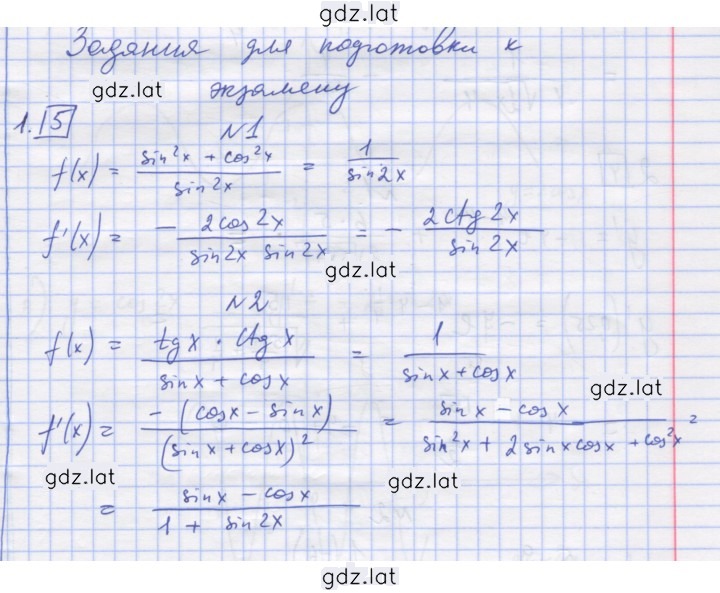 gdz.lat
Задания для подготовки к
gdz.lat экзамену
1. 15
N1
f(x) = (sin²x + cos²x)/(sin2x) = 1/(sin2x)
f'(x) = - (2cos2x)/(sin2x sin2x) = - (2ctg2x)/(sin2x)
gdz.lat
N2
f(x) = (tgx · ctgx)/(sinx + cosx) = 1/(sinx + cosx)
gdz.lat
f'(x) = (-(cosx - sinx))/((sinx + cosx)²) = (sinx - cosx)/(sin²x + 2sinxcosx + cos²x) =
gdz.lat gdz.lat
= (sinx - cosx)/(1 + sin2x)
gdz.lat